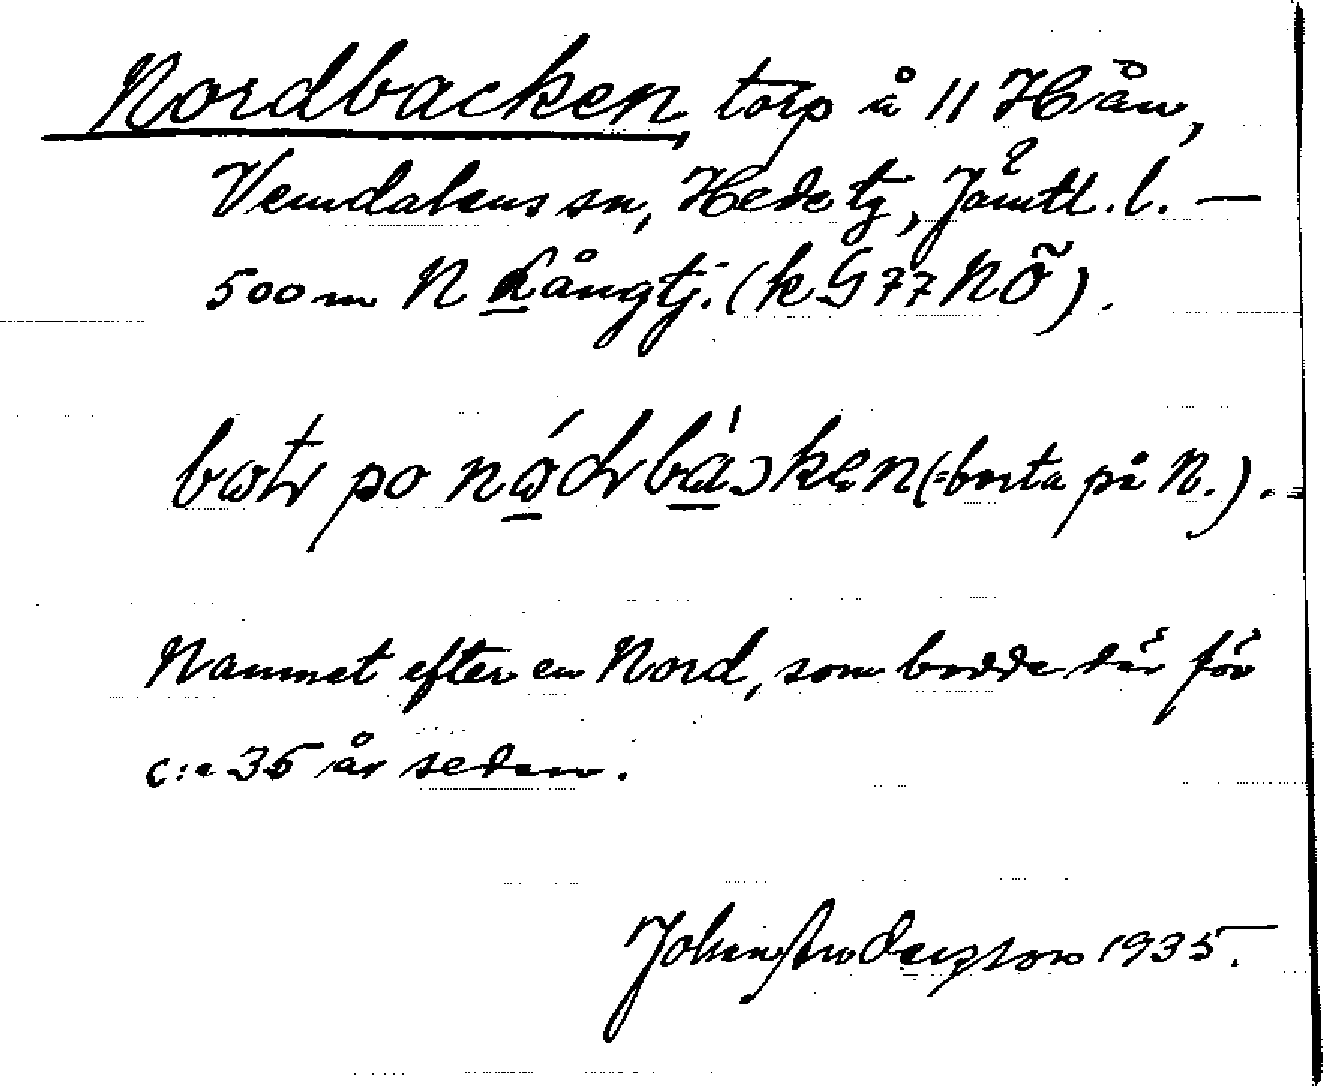 Nordbacken, torp å 11 Hån,
Vemdalens sn, Hede tg, Jämtl. l. —
500 m N Långtj. (k G 77 NÖ).
bɷtr po nɷ́drbàkken (= borta på N.).
Namnet efter en Nord, som bodde där för
c:a 35 år sedan.
Johan Anderzson 1935.